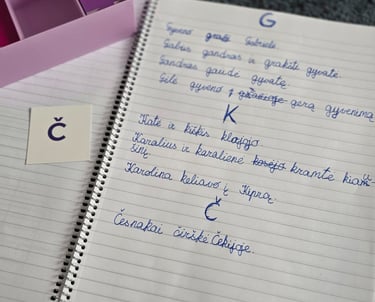 G
Gyveno graži Gabrielė.
Gabus gandras ir grakšti gyvatė.
Gandras gaudė gyvatę.
Gėlė gyveno gerą gyvenimą
K
Katė ir kiškis klajojo.
Karalius ir karalienė kramtė kiau-
šinį.
Karolina keliavo į Kiprą.
Č
Č
Česnakai čirškė Čekijoje.